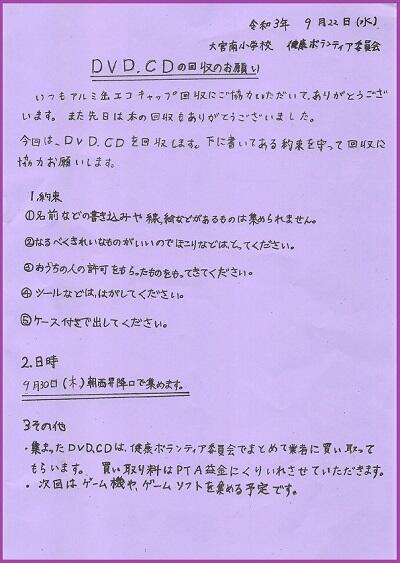 令和3年 9月22日(水)
大宮南小学校 健康ボランティア委員会
DVD.CDの回収のお願い
いつもアルミ缶エコキャップ回収にご協力いただいて、ありがとうござい
います。また先日は本の回収もありがとうございました。
今回は、DVD.CDを回収します。下に書いてある約束を守って回収に
協力お願いします。
1.約束
①名前などの書き込みや線、絵などがあるものは集められません。
②なるべくきれいなものがいいのでほこりなどは、とってください。
③おうちの人の許可をもらったものをもってきてください。
④シールなどは、はがしてください。
⑤ケース付きで出してください。
2.日時
9月30日(木)朝西昇降口で集めます。
3その他
・集まったDVD.CDは、健康ボランティア委員会でまとめて業者に買い取って
もらいます。 買い取り料はPTA益金にくりいれさせていただきます。
・次回はゲーム機や、ゲームソフトを集める予定です。